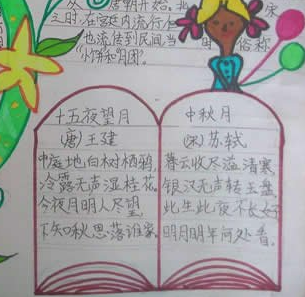 唐朝开始。
宋
之时,在宫廷内流行
也流传到民间,当
俗称
"小饼和月团"。
十五夜望月
(唐)王建
中庭地白树栖鸦,
冷露无声湿桂花。
今夜月明人尽望,
不知秋思落谁家。
中秋月
(宋)苏轼
暮云收尽溢清寒,
银汉无声转玉盘。
此生此夜不长好,
明月明年何处看。